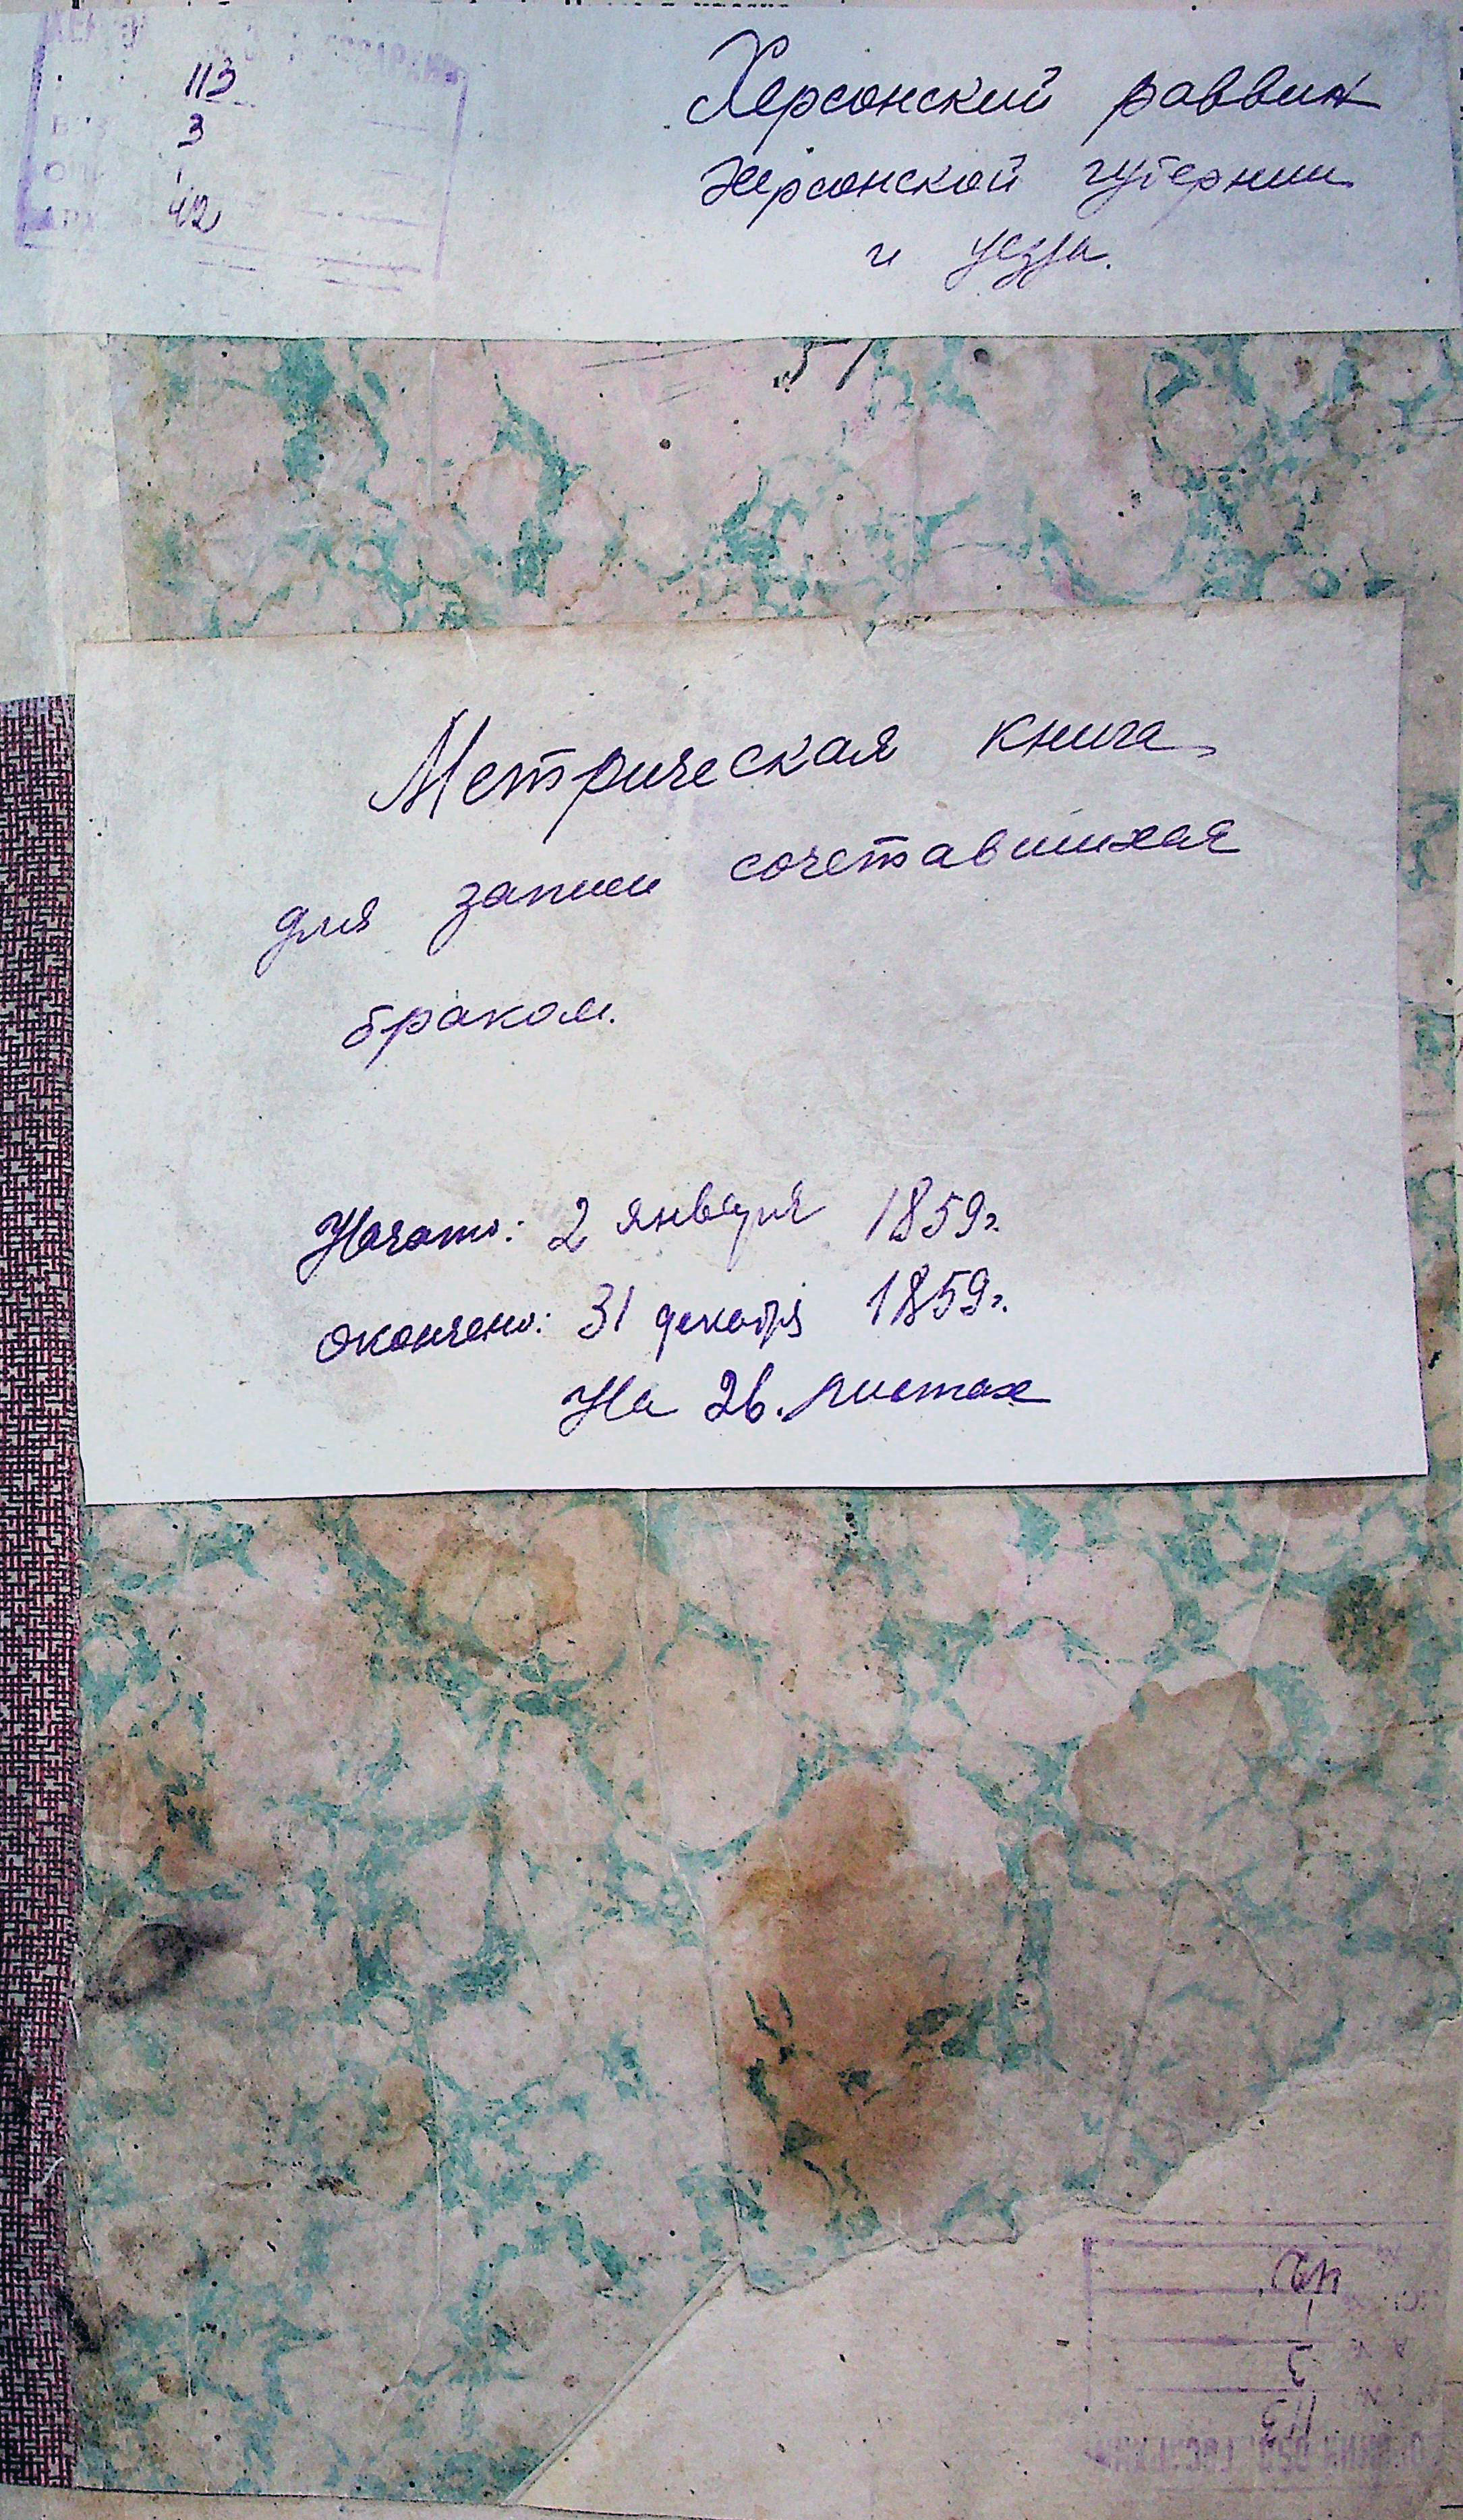 113
3
1
42
Херсонский раввин
Херсонской губернии
и уезда.
Метрическая книга
для записи сочетавшихся
браком.
Начато: 2 января 1859г.
окончено: 31 декабря 1859г.
На 26. листах
42
1
3
113